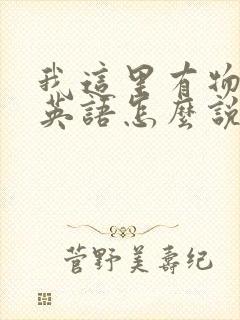 我這里有物
英語怎麼說
菅野美壽纪